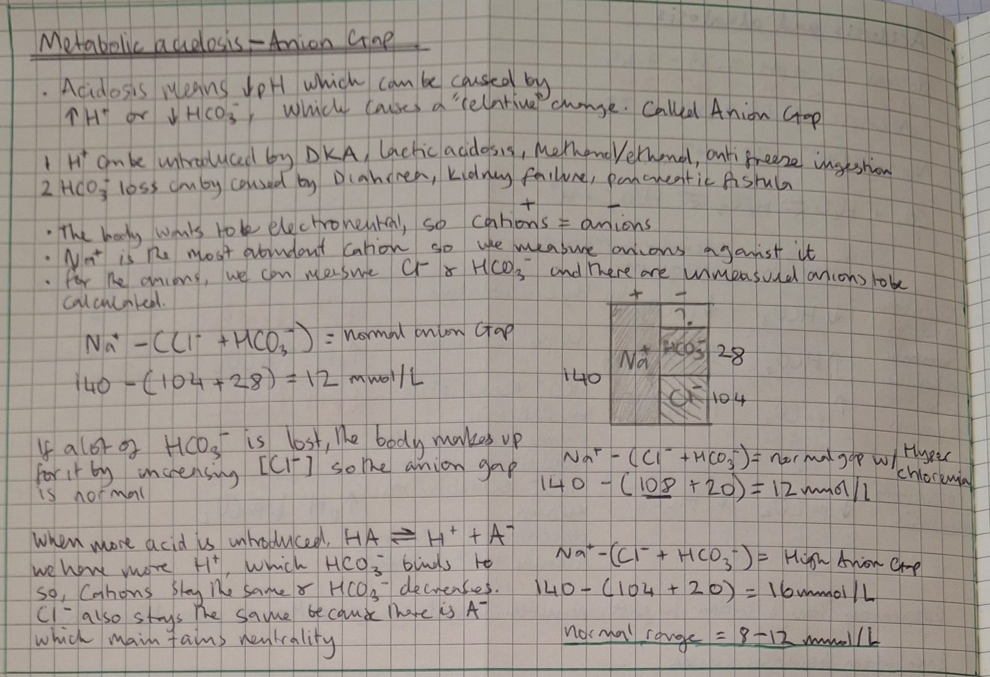 Metabolic acidosis - Anion Gap
· Acidosis means ↓pH which can be caused by
↑H⁺ or ↓HCO₃⁻, which causes a "relative" change. Called Anion Gap
1 H⁺ can be introduced by DKA, Lactic acidosis, Methanol/ethanol, anti freeze ingestion
2 HCO₃⁻ loss can by caused by Diahrrea, kidney failure, pancreatic fistula
· The body wants to be electroneutral, so cations⁺ = anions⁻
· Na⁺ is the most abundant cation so we measure anions against it
· For the anions, we can measure Cl⁻ & HCO₃⁻ and there are unmeasured anions to be
calculated.
Na⁺ - (Cl⁻ + HCO₃⁻) = normal anion Gap
140 - (104 + 28) = 12 mmol/L
+ -
?
Na⁺ HCO₃⁻ 28
140
Cl⁻ 104
If a lot of HCO₃⁻ is lost, the body makes up
for it by increasing [Cl⁻] so the anion gap
is normal
Na⁺ - (Cl⁻ + HCO₃⁻) = normal gap w/ Hyper
chloremia
140 - (108 + 20) = 12 mmol/L
When more acid is introduced, HA ⇌ H⁺ + A⁻
we have more H⁺, which HCO₃⁻ binds to
so, Cations stay the same & HCO₃⁻ decreases.
Cl⁻ also stays the same because there is A⁻
which maintains neutrality
Na⁺ - (Cl⁻ + HCO₃⁻) = High Anion Gap
140 - (104 + 20) = 16 mmol/L
normal range = 8-12 mmol/L